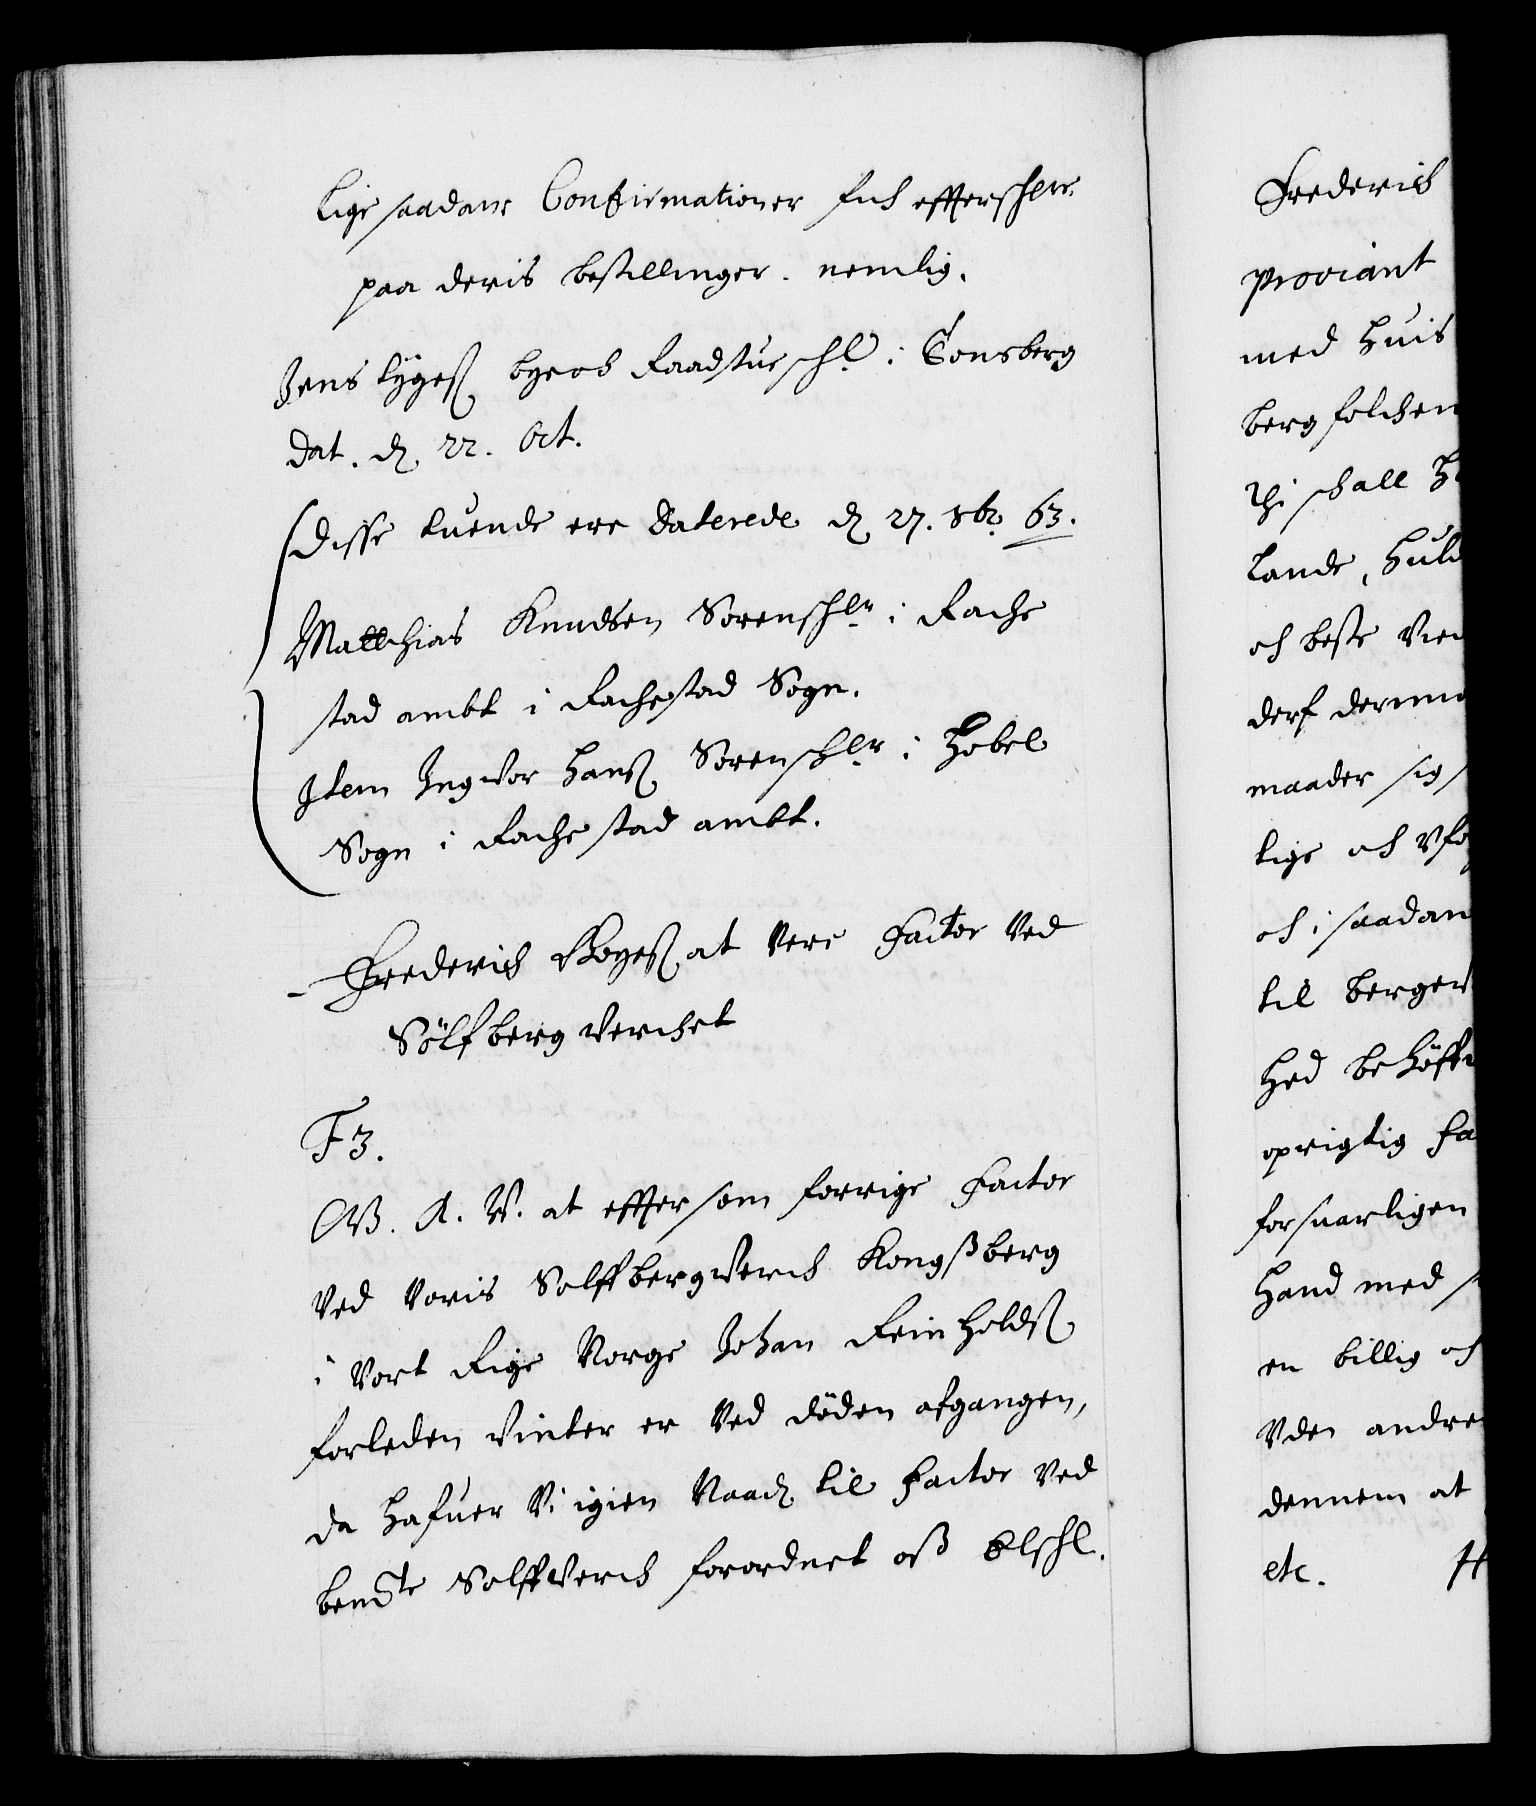 Lige saadane Confirmationer fick effterschrne
paa deris bestillinger. nemlig.
Jens Lygeß byeoch Raadstueschr i Tonsberg
dat. d. 22. Oct.
Disse tuende ere daterede d 27. 8br 63.
Matthias Knudsen Sorenschr i Rache
stad ambt i Rachestad Sogn.
Item Ingvor Hanß Sorenschr i Hobel
Sogn i Rachestad ambt.
Frederich Boyeß at Vere Factor Ved
Sölfberg Verchet
F3.
G. A. V. at effter som forrige Factor
Ved Voris Solffbergverch Kongßberg
i Vort Rige Norge Johan Reinholdß
forleden Vinter er Ved döden afgangen,
da hafuer Vi igien Naad. til Factor Ved
bemte Solffverch forordnet oß Elschl.
Frederich
Proviant
med huis
berg folchen
Thi schall
Lande, huld
och beste Vie
derf
maader sig
lige och
och i saadan
til berger
hed behöff
oprigtig
forsuarligen
Hand med
en billig och
Vden andre
dennem at
etc.